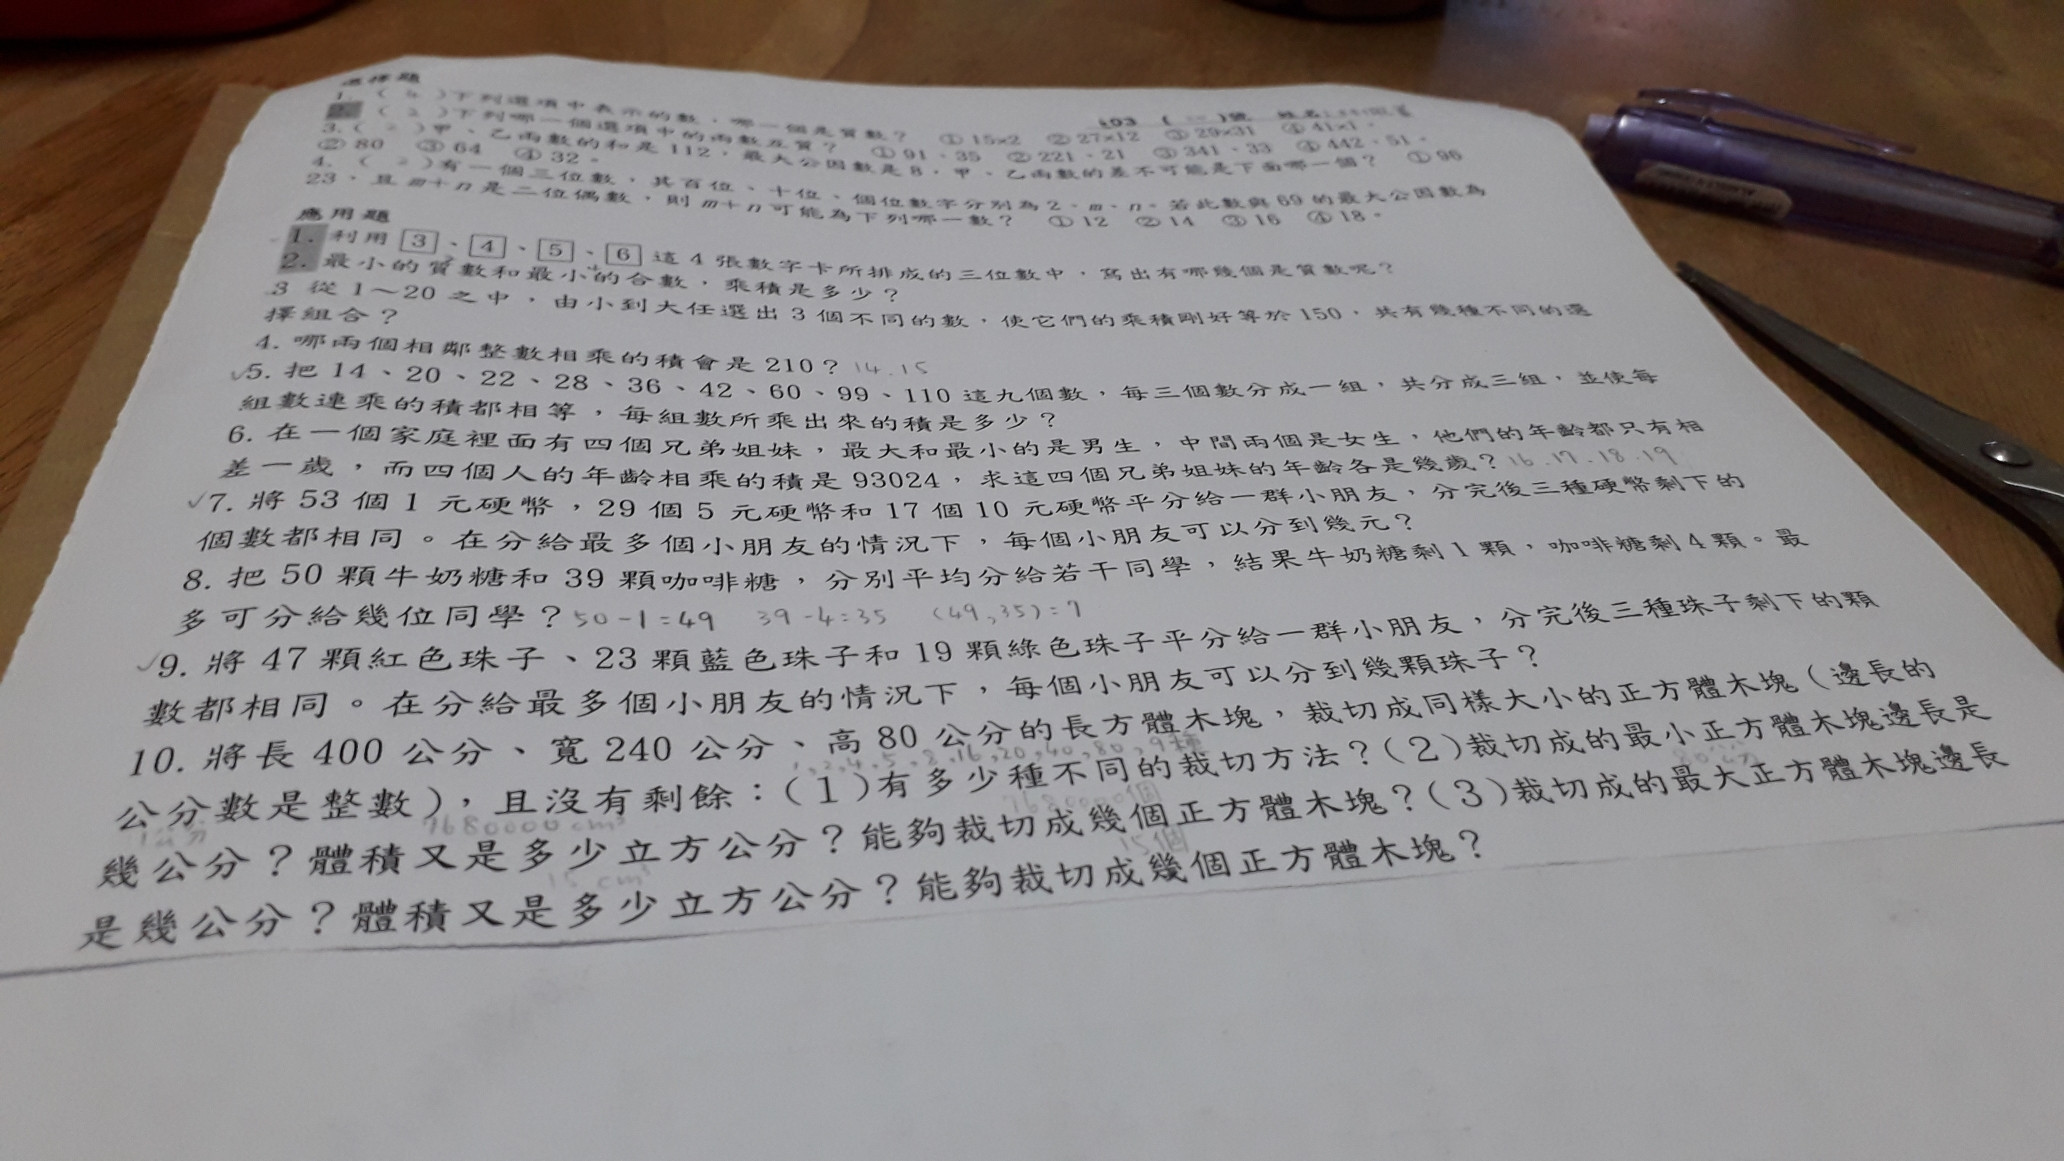 選擇題 603 ( )號 姓名
1. ( 4 )下列選項中表示的數,哪一個是質數? ① 15×2 ② 27×12 ③ 29×31 ④ 41×1。
2. ( 2 )下列哪一個選項中的兩數互質? ① 91、35 ② 221、21 ③ 341、33 ④ 442、51。
3. ( )甲、乙兩數的和是 112,最大公因數是 8,甲、乙兩數的差不可能是下面哪一個? ① 96
② 80 ③ 64 ④ 32。
4. ( 2 )有一個三位數,其百位、十位、個位數字分別為 2、m、n。若此數與 69 的最大公因數為
23,且 m+n 是二位偶數,則 m+n 可能為下列哪一數? ① 12 ② 14 ③ 16 ④ 18。
應用題
1. 利用 3、4、5、6 這 4 張數字卡所排成的三位數中,寫出有哪幾個是質數呢?
2. 最小的質數和最小的合數,乘積是多少?
3 從 1～20 之中,由小到大任選出 3 個不同的數,使它們的乘積剛好等於 150,共有幾種不同的選
擇組合?
4. 哪兩個相鄰整數相乘的積會是 210? 14.15
✓5. 把 14、20、22、28、36、42、60、99、110 這九個數,每三個數分成一組,共分成三組,並使每
組數連乘的積都相等,每組數所乘出來的積是多少?
6. 在一個家庭裡面有四個兄弟姐妹,最大和最小的是男生,中間兩個是女生,他們的年齡都只有相
差一歲,而四個人的年齡相乘的積是 93024,求這四個兄弟姐妹的年齡各是幾歲? 16.17.18.19
✓7. 將 53 個 1 元硬幣,29 個 5 元硬幣和 17 個 10 元硬幣平分給一群小朋友,分完後三種硬幣剩下的
個數都相同。在分給最多個小朋友的情況下,每個小朋友可以分到幾元?
8. 把 50 顆牛奶糖和 39 顆咖啡糖,分別平均分給若干同學,結果牛奶糖剩 1 顆,咖啡糖剩 4 顆。最
多可分給幾位同學? 50-1=49 39-4=35 (49,35)=7
✓9. 將 47 顆紅色珠子、23 顆藍色珠子和 19 顆綠色珠子平分給一群小朋友,分完後三種珠子剩下的顆
數都相同。在分給最多個小朋友的情況下,每個小朋友可以分到幾顆珠子?
10. 將長 400 公分、寬 240 公分、高 80 公分的長方體木塊,裁切成同樣大小的正方體木塊(邊長的
1,2,4,5,8,16,20,40,80,9種
公分數是整數),且沒有剩餘:(1)有多少種不同的裁切方法?(2)裁切成的最小正方體木塊邊長是
1公分 7680000cm³ 7680000個 80公分
幾公分?體積又是多少立方公分?能夠裁切成幾個正方體木塊?(3)裁切成的最大正方體木塊邊長
15cm³ 15個
是幾公分?體積又是多少立方公分?能夠裁切成幾個正方體木塊?